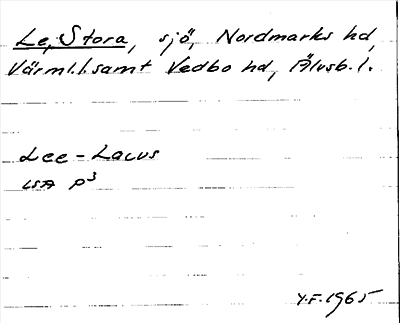 Le, Stora, sjö, Nordmarks hd,
Värml.l. samt Vedbo hd, Älvsb. l.
Lee - Lacus
LSA P3
Y.F. 1965